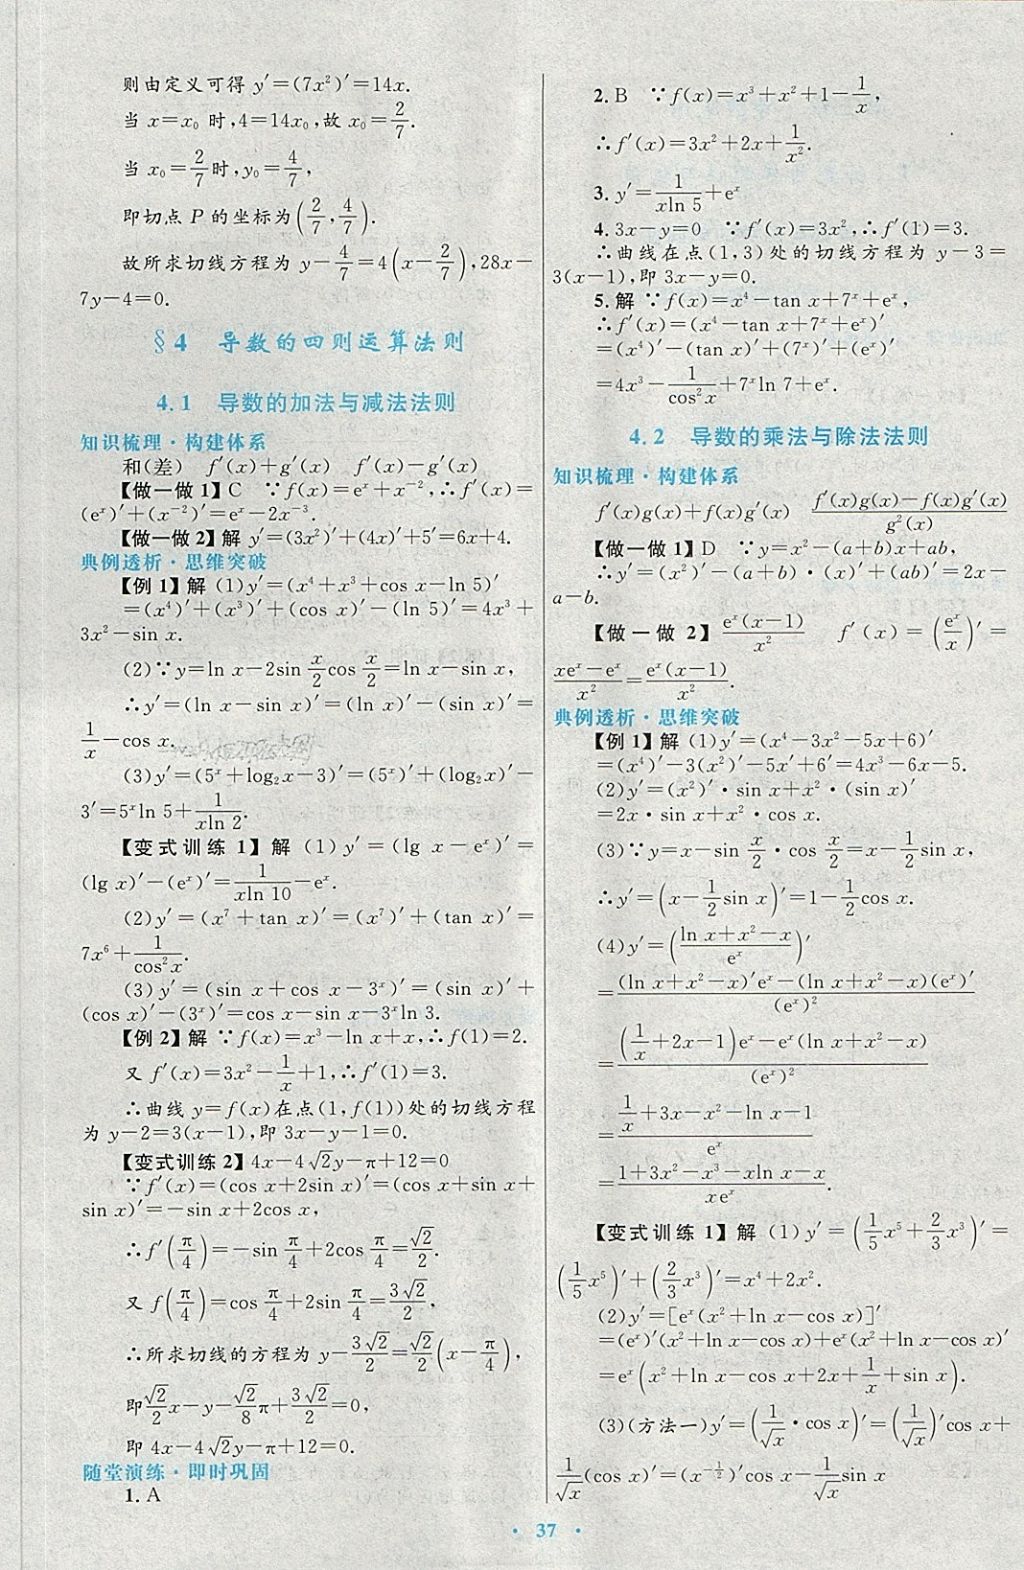 则由定义可得 y′=(7x²)′=14x.
当 x=x₀ 时,4=14x₀,故 x₀=2/7.
当 x₀=2/7时,y₀=4/7,
即切点 P 的坐标为(2/7,4/7).
故所求切线方程为 y-4/7=4(x-2/7),28x-
7y-4=0.
§4 导数的四则运算法则
4.1 导数的加法与减法法则
知识梳理·构建体系
和(差) f′(x)+g′(x) f′(x)-g′(x)
【做一做1】C ∵f(x)=eˣ+x⁻²,∴f′(x)=
(eˣ)′+(x⁻²)′=eˣ-2x⁻³.
【做一做2】解 y′=(3x²)′+(4x)′+5′=6x+4.
典例透析·思维突破
【例1】解 (1)y′=(x⁴+x³+cos x-ln 5)′
=(x⁴)′+(x³)′+(cos x)′-(ln 5)′=4x³+
3x²-sin x.
(2)∵y=ln x-2sin x/2 cos x/2=ln x-sin x,
∴y′=(ln x-sin x)′=(ln x)′-(sin x)′=
1/x-cos x.
(3)y′=(5ˣ+log₂x-3)′=(5ˣ)′+(log₂x)′-
3′=5ˣln 5+1/(xln 2).
【变式训练1】解 (1)y′=(lg x-eˣ)′=
(lg x)′-(eˣ)′=1/(xln 10)-eˣ.
(2)y′=(x⁷+tan x)′=(x⁷)′+(tan x)′=
7x⁶+1/(cos²x).
(3)y′=(sin x+cos x-3ˣ)′=(sin x)′+
(cos x)′-(3ˣ)′=cos x-sin x-3ˣln 3.
【例2】解 ∵f(x)=x³-ln x+x,∴f(1)=2.
又 f′(x)=3x²-1/x+1,∴f′(1)=3.
∴曲线 y=f(x)在点(1,f(1))处的切线方程
为 y-2=3(x-1),即 3x-y-1=0.
【变式训练2】4x-4√2y-π+12=0
∵f′(x)=(cos x+2sin x)′=(cos x+sin x+
sin x)′=-sin x+2cos x,
∴f′(π/4)=-sin π/4+2cos π/4=√2/2.
又 f(π/4)=cos π/4+2sin π/4=3√2/2,
∴所求切线的方程为 y-3√2/2=√2/2(x-π/4),
即√2/2x-y-√2/8π+3√2/2=0,
即 4x-4√2y-π+12=0.
随堂演练·即时巩固
1.A
2.B ∵f(x)=x³+x²+1-1/x,
∴f′(x)=3x²+2x+1/x².
3.y′=1/(xln 5)+eˣ
4.3x-y=0 ∵f′(x)=3x²,∴f′(1)=3.
∴曲线在点(1,3)处的切线方程为 y-3=
3(x-1),即 3x-y=0.
5.解 ∵f(x)=x⁴-tan x+7ˣ+eˣ,
∴f′(x)=(x⁴-tan x+7ˣ+eˣ)′
=(x⁴)′-(tan x)′+(7ˣ)′+(eˣ)′
=4x³-1/(cos²x)+7ˣln 7+eˣ.
4.2 导数的乘法与除法法则
知识梳理·构建体系
f′(x)g(x)+f(x)g′(x) (f′(x)g(x)-f(x)g′(x))/(g²(x))
【做一做1】D ∵y=x²-(a+b)x+ab,
∴y′=(x²)′-(a+b)·(x)′+(ab)′=2x-
a-b.
【做一做2】eˣ(x-1)/x² f′(x)=(eˣ/x)′=
(xeˣ-eˣ)/x²=eˣ(x-1)/x².
典例透析·思维突破
【例1】解 (1)y′=(x⁴-3x²-5x+6)′
=(x⁴)′-3(x²)′-5x′+6′=4x³-6x-5.
(2)y′=(x²)′·sin x+x²·(sin x)′
=2x·sin x+x²·cos x.
(3)∵y=x-sin x/2·cos x/2=x-1/2sin x,
∴y′=(x-1/2sin x)′=1-1/2cos x.
(4)y′=((ln x+x²-x)/eˣ)′
=((ln x+x²-x)′eˣ-(ln x+x²-x)(eˣ)′)/(eˣ)²
=((1/x+2x-1)eˣ-eˣ(ln x+x²-x))/(eˣ)²
=(1/x+3x-x²-ln x-1)/eˣ
=(1+3x²-x³-xln x-x)/(xeˣ).
【变式训练1】解 (1)y′=(1/5x⁵+2/3x³)′=
(1/5x⁵)′+(2/3x³)′=x⁴+2x².
(2)y′=[eˣ(x²+ln x-cos x)]′
=(eˣ)′(x²+ln x-cos x)+eˣ(x²+ln x-cos x)′
=eˣ(x²+ln x-cos x+2x+1/x+sin x).
(3)(方法一)y′=(1/√x·cos x)′=(1/√x)′cos x+
1/√x(cos x)′=(x^(-1/2))′cos x-1/√x sin x
· 37 ·